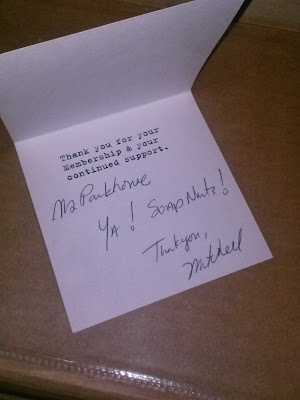 Thank you for your
Membership & your
continued support.
Ms Parkhouse
YA! SOAP Nuts!
Thankyou,
Mitchell